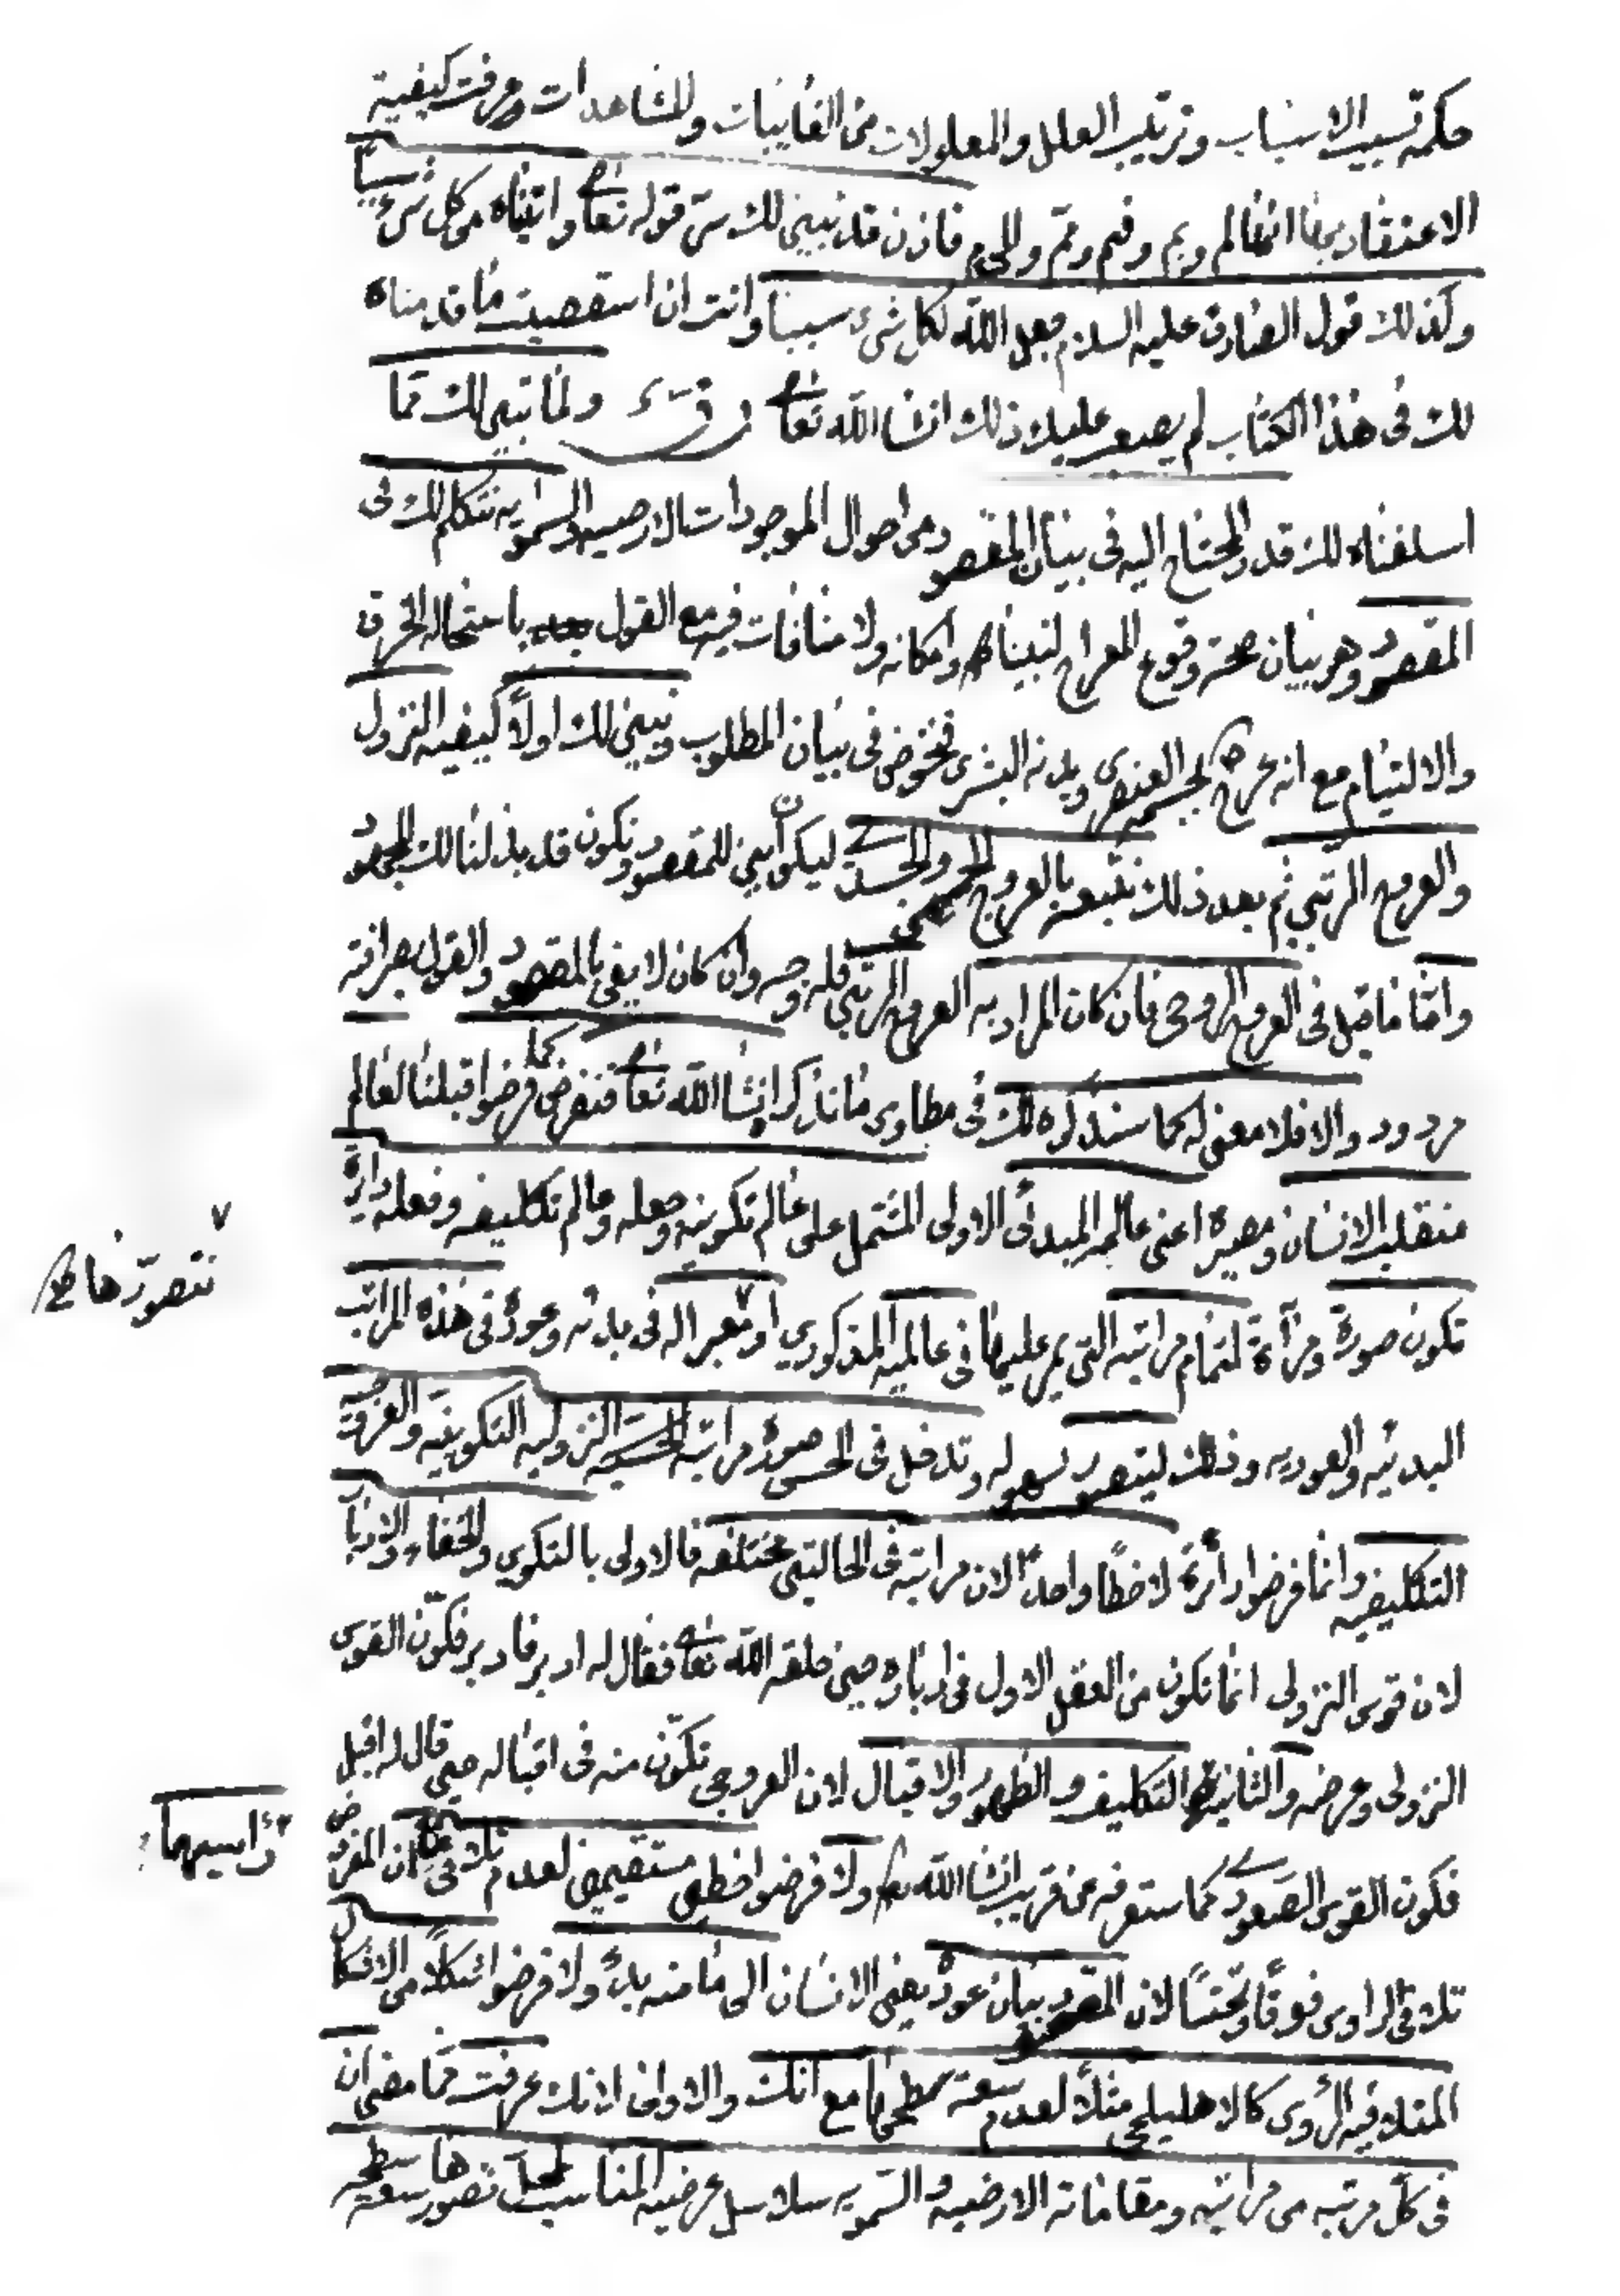 حكمة تسبيب الاسباب وترتيب العلل والمعلولات من الغايبات والمشاهدات وعرفت كيفية
الاعتقاد بها انها لم وبم وفيم ومم فاذن قد تبين لك سر قوله تعا واتيناه من كل شيء سببا
وكذلك قول الصادق عليه السلام جعل الله لكل شيء سببا وانت ان استقصيت ما قدمناه
لك في هذا الكتاب لم يصعب عليك ذلك انشا الله تعا ولما تبين لك مما
اسلفناه لك قدر المحتاج اليه في بيان المقصود من احوال الموجودات الارضيه والسمويه نتكلم لك في
المقصود وهو بيان صحة وقوع المعراج لنبينا ص وامكانه ولا منافات فيه مع القول باستحاله الخرق
والالتيام مع انه عرج بجسمه العنصري وبدنه البشري فنخوض في بيان المطلوب ونبين لك اولاً كيفيه النزول
والعروج الرتبي ثم بعد ذلك نتبعه بالعروج الجسمي والجسدي ليكون ابين للمقصود ونكون قد بذلنا لك المجهود
واما ما قيل في العروج الروحي فان كان المراد به العروج الرتبي فله وجه وان كان لا يفي بالمقصود والقول بصرافته
مردود والا فلا معنى له كما سنذكره لك في مطاوى ما نذكر انشا الله تعا فنفرض كما فرضوا قبلنا لعالم
منقلب الانسان ومصيره اعني عالمه المبدئى الاولى المشتمل على عالم تكوينه وجعله وعالم تكليفه وفعله دايرة
تكون صورة ومرآة لتمام مراتبه التي يمر عليها في عالميه المذكورين او معبر اله في بدئه وعوده في هذه المراتب
نتصورها
البدئيه والعوديه وذلك ليتصور بسهوله وتدخل في الحس صورة مراتبه النزوليه التكوينيه والعروجيه
التكليفيه وانما فرضوا دائرة لا خطاً واحداً لان مراتبه في الحالتين مختلفه فالاولى بالتكوين والخفاء والادبار
لان قوس النزولى انما تكون من العقل الاول في ادباره حين خلقه الله تعا فقال له ادبر فادبر فكوّن القوس
النزولى وعرضه والثانيه التكليف والظهور والاقبال لان العروجى تكوّن منه في اقباله حين قال له اقبل
فكون القوس الصعودي كما ستعرفه عن قريب انشا الله تع ولا فرضوا خطين مستقيمين لعدم تلاقي لان المفروض
رأسيهما
تلاقى الراوس فوقاً وتحتاً لان المقصود بيان عوده يعني الانسان الى ما منه بدئه ولا فرضوا شكلاً من الاشكال
المتلاقيه الرؤس كالاهليلجي مثلاً لعدم سعة سطحها مع انك والاولى لانك عرفت مما مضى ان
في كل مرتبه من مراتبه ومقاماته الارضيه والسمويه سلاسل عرضيه المناسب لها تصورها سعة سطحيه